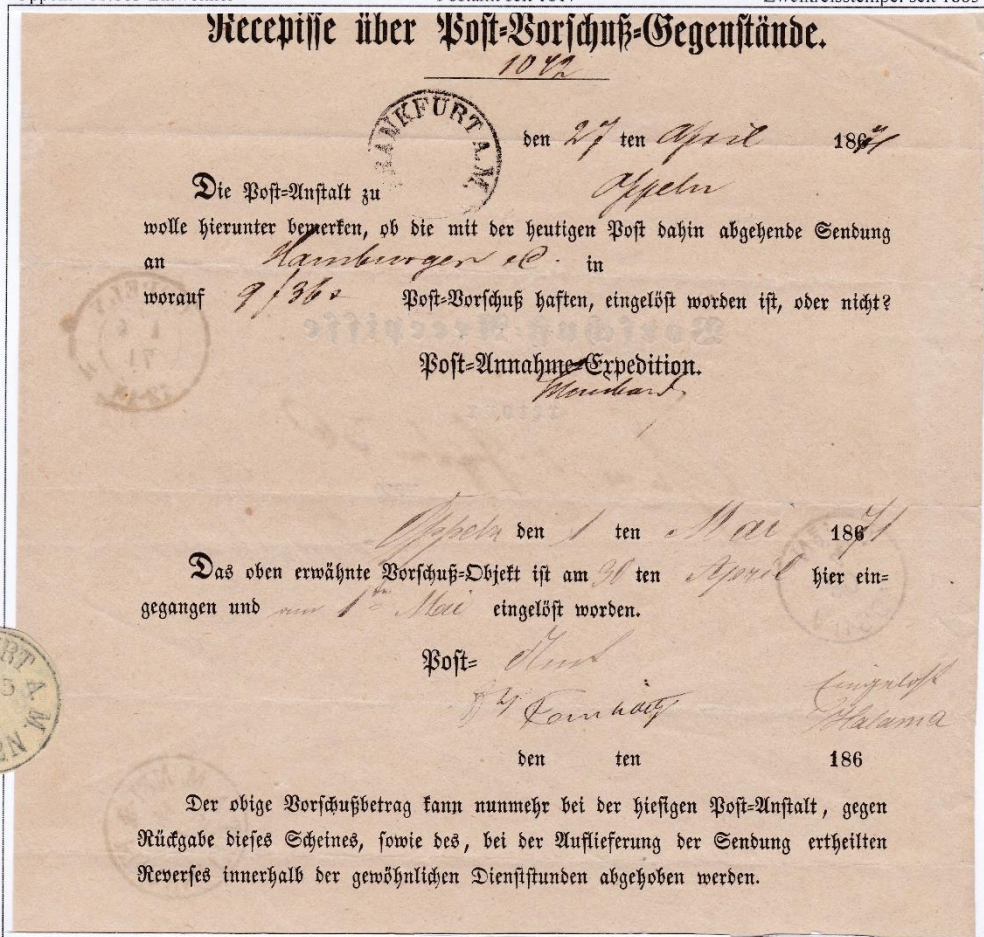 Recepisse über Post-Vorschuß-Gegenstände.
1042
FRANKFURT A. M.
den 27 ten April 1871
Die Post-Anstalt zu Oppeln
wolle hierunter bemerken, ob die mit der heutigen Post dahin abgehende Sendung
an Hamburger &C. in
worauf 9 f 36 Post-Vorschuß haften, eingelöst worden ist, oder nicht?
Post-Annahme-Expedition.
Oppeln den 1 ten Mai 1871
Das oben erwähnte Vorschuß-Objekt ist am 30 ten April hier ein-
gegangen und am 1ten Mai eingelöst worden.
Post- Amt
Eingelöst
Halama
den ten 186
Der obige Vorschußbetrag kann nunmehr bei der hiesigen Post-Anstalt, gegen
Rückgabe dieses Scheines, sowie des, bei der Auflieferung der Sendung ertheilten
Reverses innerhalb der gewöhnlichen Dienststunden abgehoben werden.